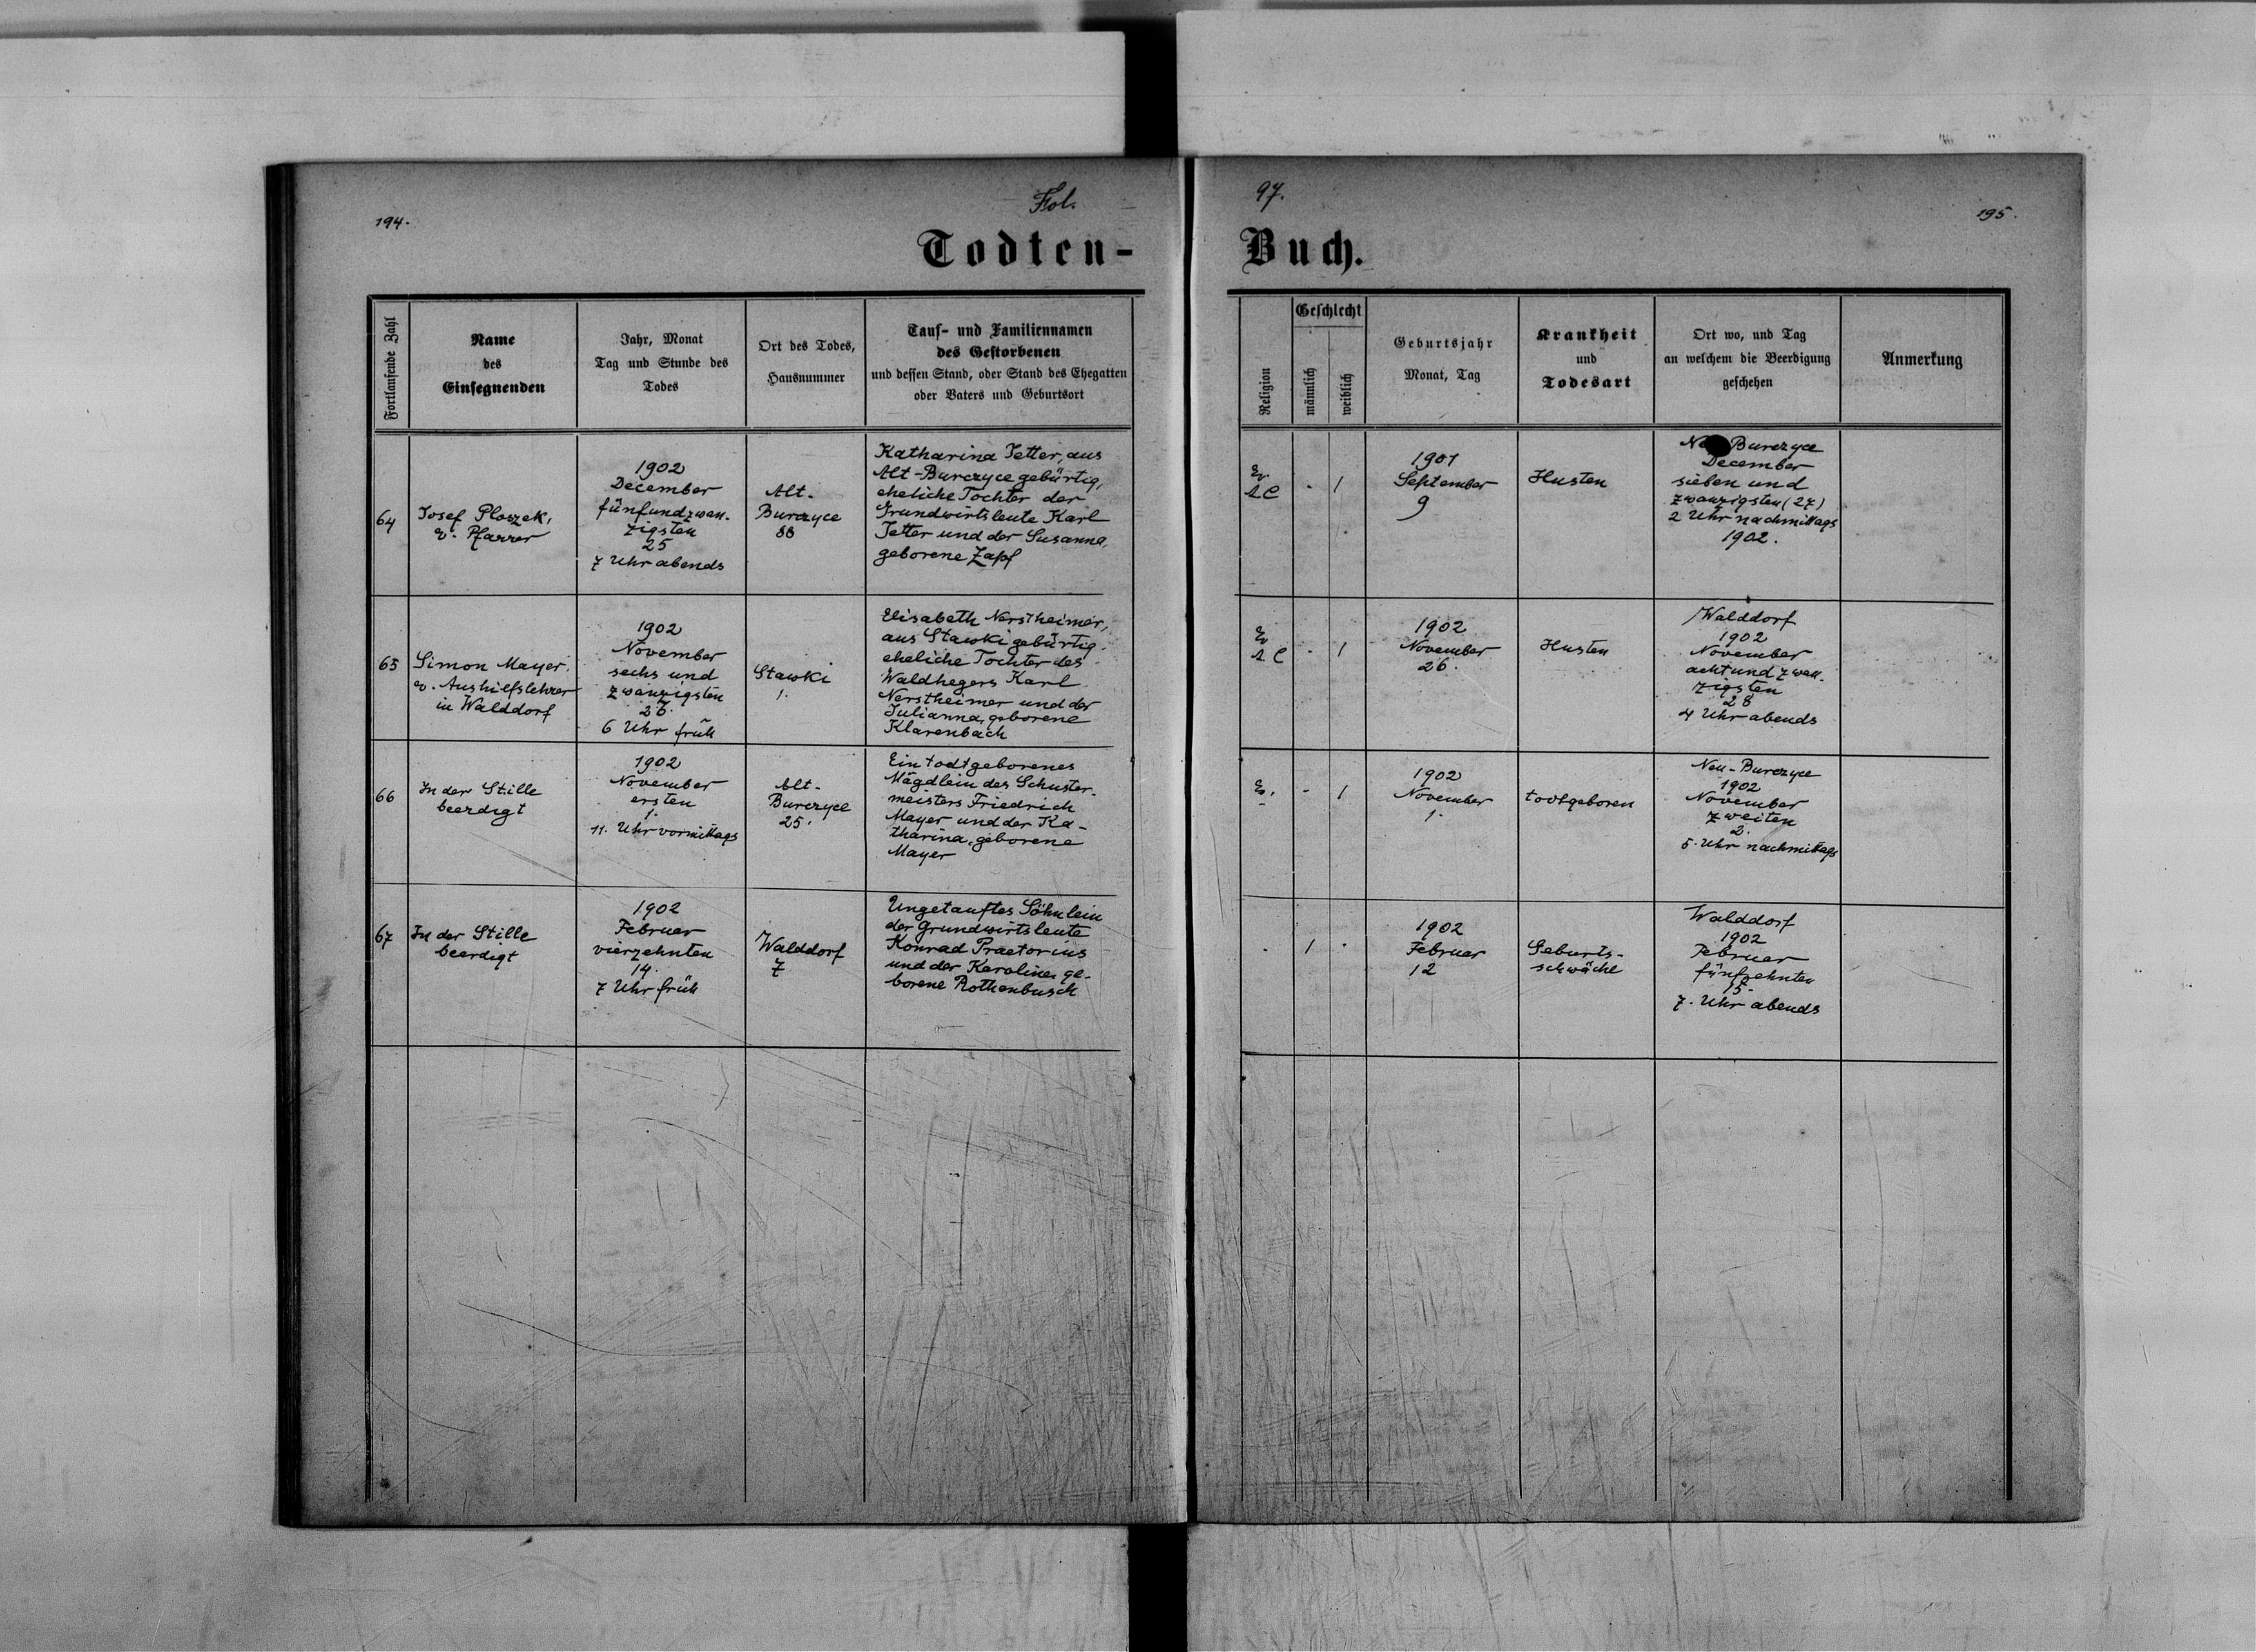 194.
Fol.
97.
195.
Todten-
Buch.
Fortlaufende Zahl
Name
des
Einsegnenden
Jahr, Monat
Tag und Stunde des
Todes
Ort des Todes,
Hausnummer
Tauf- und Familiennamen
des Gestorbenen
und dessen Stand, oder Stand des Ehegatten
oder Vaters und Geburtsort
Religion
Geschlecht
männlich
weiblich
Geburtsjahr
Monat, Tag
Krankheit
und
Todesart
Ort wo, und Tag
an welchem die Beerdigung
geschehen
Anmerkung
64
Josef Ploszek,
ev. Pfarrer
1902
December
fünfundzwan-
zigsten
25
7 Uhr abends
Alt-
Burczyce
88
Katharina Jetter, aus
Alt-Burczyce gebürtig,
eheliche Tochter der
Grundwirtsleute Karl
Jetter und der Susanna,
geborene Zapf
Ev.
A C
-
1
1901
September
9
Husten
Burczyce
December
sieben und
zwanzigsten (27)
2 Uhr nachmittags
1902.
65
Simon Mayer,
ev. Aushilfslehrer
in Walddorf
1902
November
sechs und
zwanzigsten
26.
6 Uhr früh
Stawki
1.
Elisabeth Nerstheimer,
aus Stawki gebürtig,
eheliche Tochter des
Waldhegers Karl
Nerstheimer und der
Julianna, geborene
Klarenbach
Ev
A C
-
1
1902
November
26.
Husten
Walddorf
1902
November
achtundzwan-
zigsten
28
4 Uhr abends
66
In der Stille
beerdigt
1902
November
ersten
1.
11. Uhr vormittags
Alt-
Burczyce
25.
Ein todtgeborenes
Mägdlein des Schuster-
meisters Friedrich
Mayer und der Ka-
tharina, geborene
Mayer
Ev.
-
1
1902
November
1.
todtgeboren
Neu-Burczyce
1902
November
zweiten
2.
5. Uhr nachmittags
67
In der Stille
beerdigt
1902
Februar
vierzehnten
14.
7 Uhr früh
Walddorf
7
Ungetauftes Söhnlein
der Grundwirtsleute
Konrad Praetorius
und der Karoline, ge-
borene Rothenbusch
1
1902
Februar
12
Geburts-
schwäche
Walddorf
1902
Februar
fünfzehnten
15.
7. Uhr abends